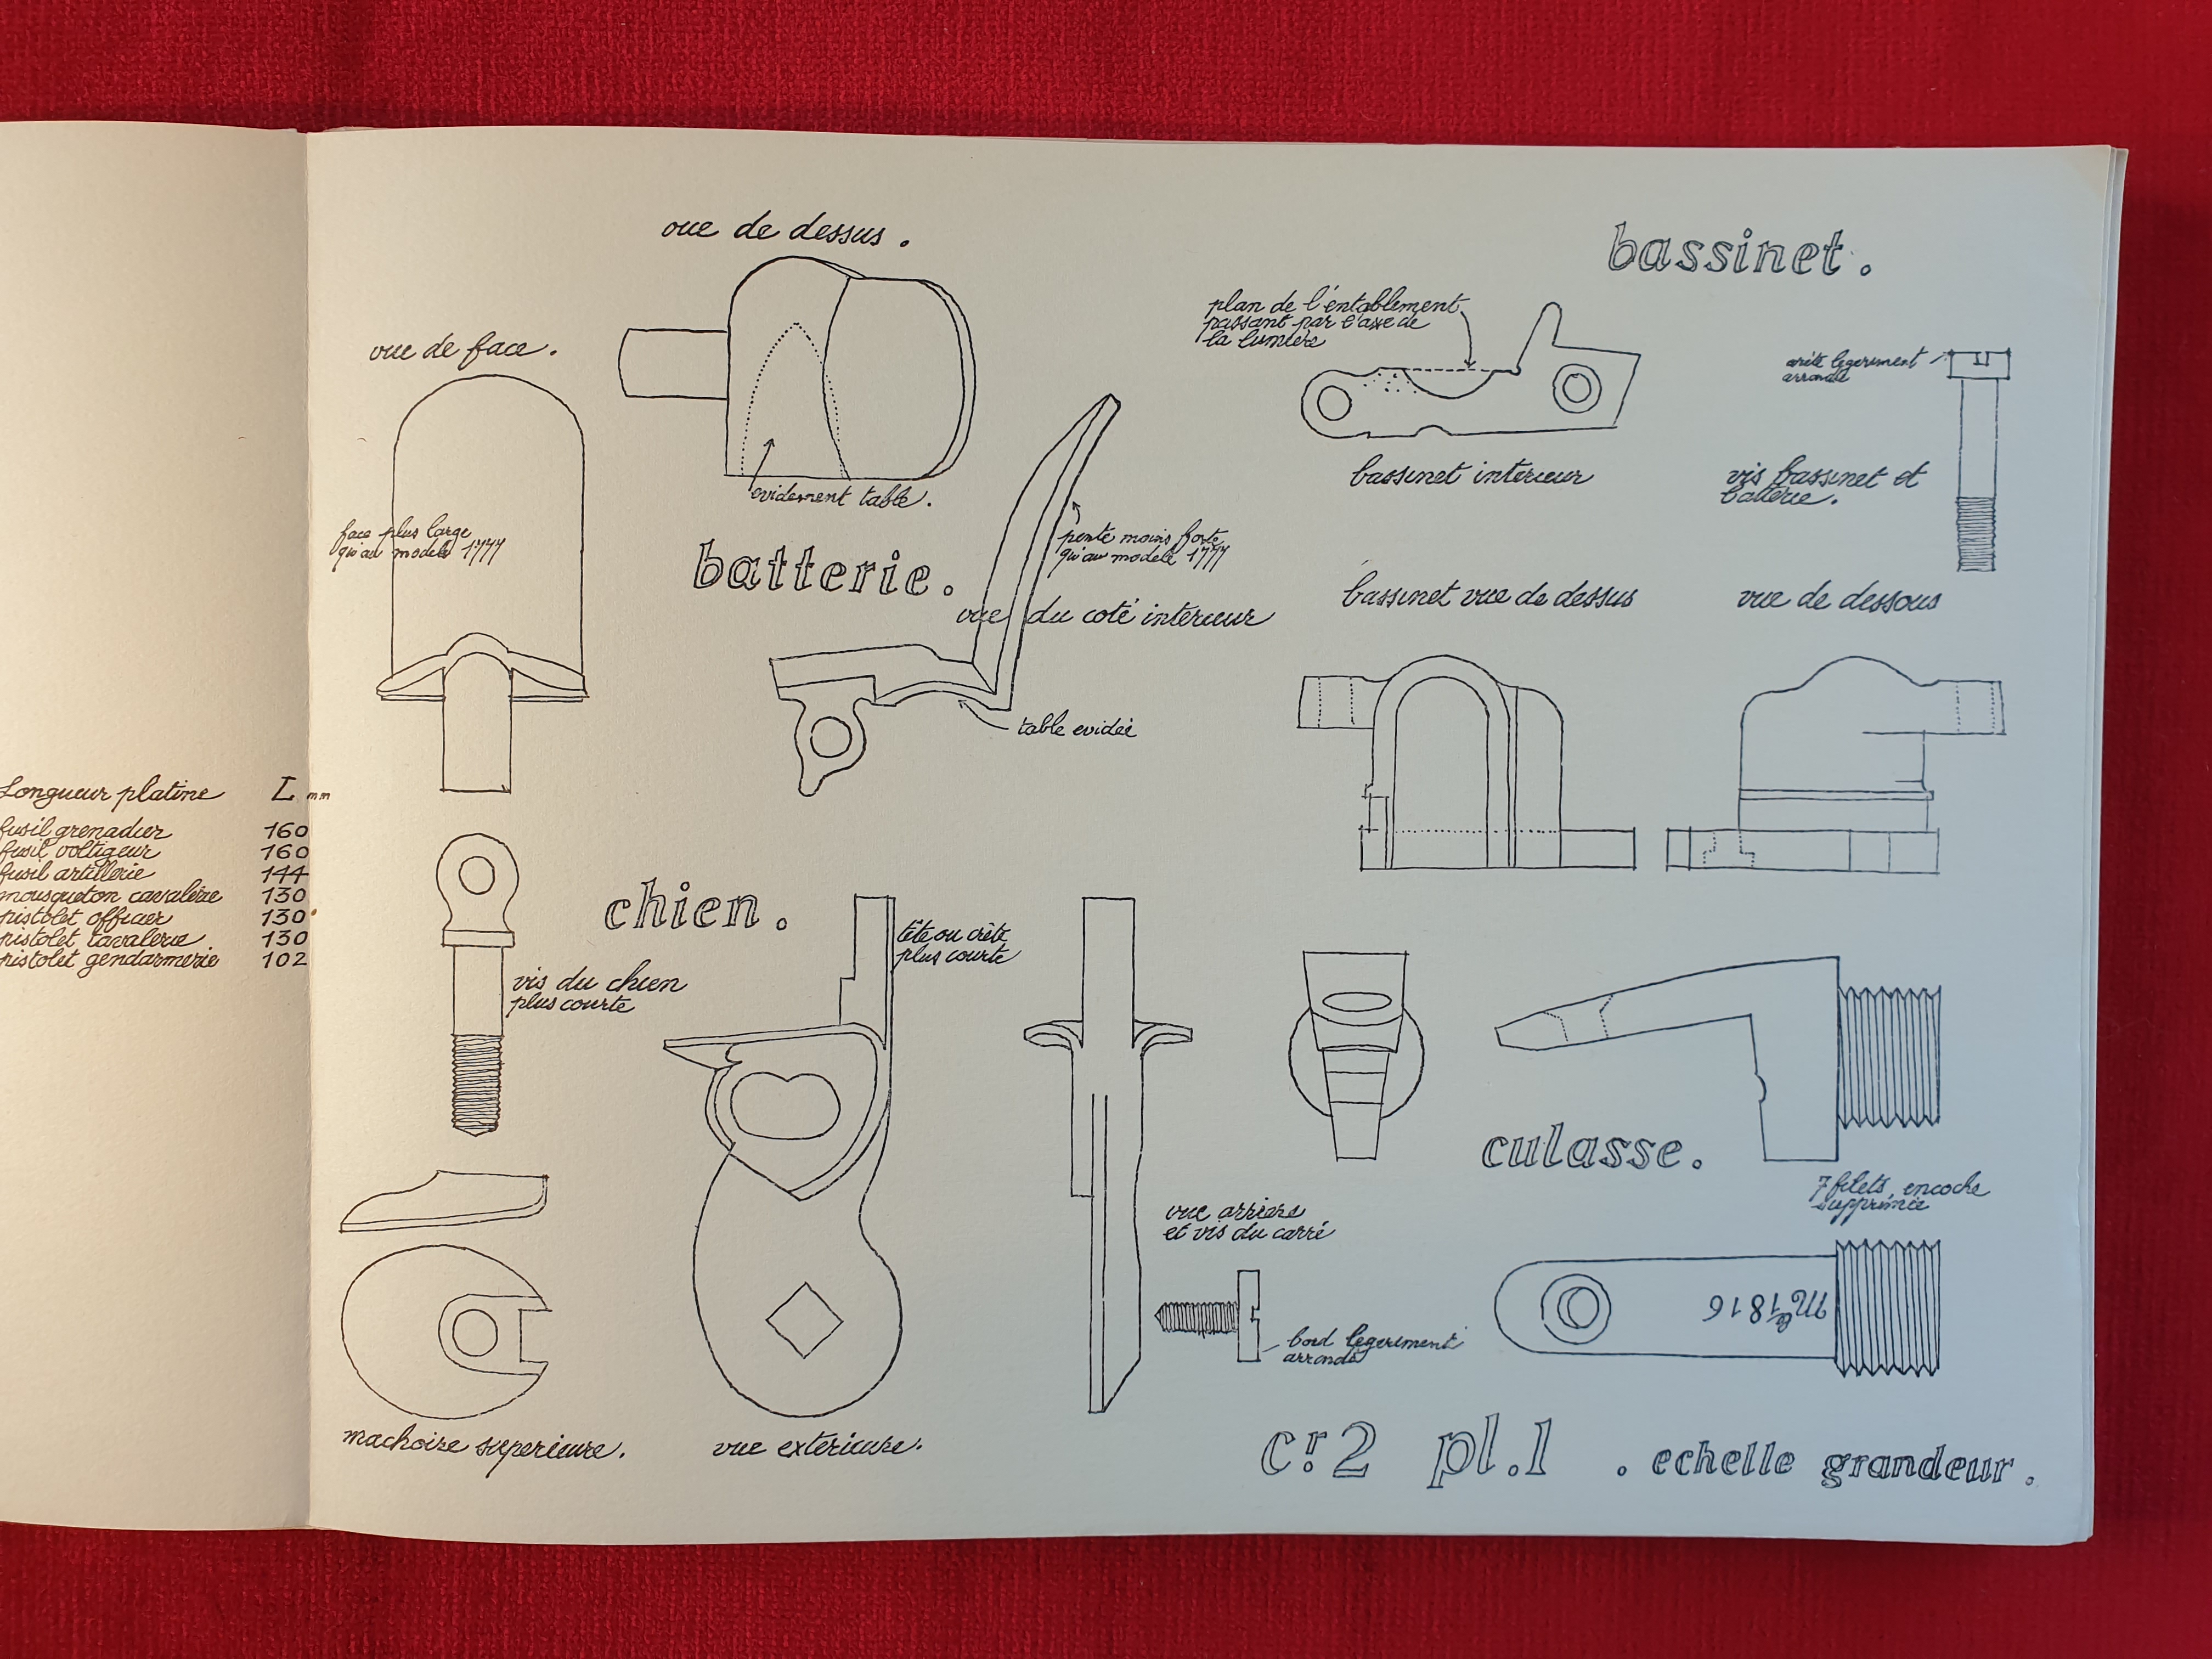 Longueur platine L mm
fusil grenadier 160
fusil voltigeur 160
fusil artillerie 144
mousqueton cavalerie 130
pistolet officier 130
pistolet cavalerie 130
pistolet gendarmerie 102
vue de dessus.
vue de face.
evidement table.
face plus large
qu'au modele 1777
batterie.
pente moins forte
qu'au modele 1777
vue du coté interieur
table evidée
bassinet.
plan de l'entablement
passant par l'axe de
la lumière
arète legerement
arrondie
bassinet interieur
vis bassinet et
batterie.
bassinet vue de dessus
vue de dessous
chien.
tête ou crète
plus courte
vis du chien
plus courte
machoire superieure.
vue exterieure.
vue arriere
et vis du carré
bord legerement
arrondi
culasse.
7 filets, encoche
supprimée
Mle 1816
cr. 2 pl. 1 . echelle grandeur.